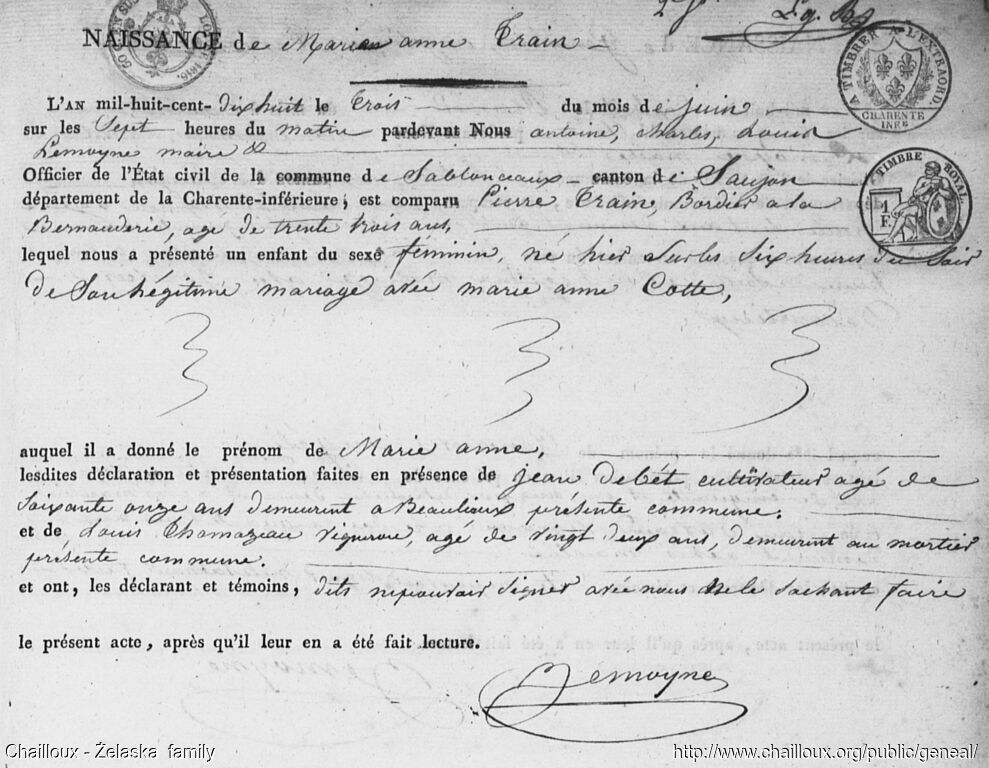 NAISSANCE de Marie anne Train
A TIMBRER A L'EXTRAORD.
CHARENTE
INFRE
L'AN mil-huit-cent-dixhuit le trois du mois de juin
sur les Sept heures du matin pardevant Nous antoine, charles, Louis
Lemoyne maire &
Officier de l'État civil de la commune de Sablonceaux canton de Saujon
département de la Charente-inférieure, est comparu Pierre Train, Bordier a la
Bernauderie, age de trente trois ans,
TIMBRE ROYAL
1 F.
lequel nous a présenté un enfant du sexe féminin, né hier Sur les Six heures du Soir
de Son légitime mariage avée marie anne Cotte,
auquel il a donné le prénom de Marie anne,
lesdites déclaration et présentation faites en présence de jean Debét cultivateur agé de
Soixante onze ans demeurent a Beaulioux présente commune.
et de Louis Thomazeau vigneron, agé de vingt deux ans, demeurent au mortier
présente commune.
et ont, les déclarant et témoins, dits ne pouvoir Signer avée nous ne le Sachant faire
le présent acte, après qu'il leur en a été fait lecture.
Lemoyne
Chailloux - Żelaska family
http://www.chailloux.org/public/geneal/